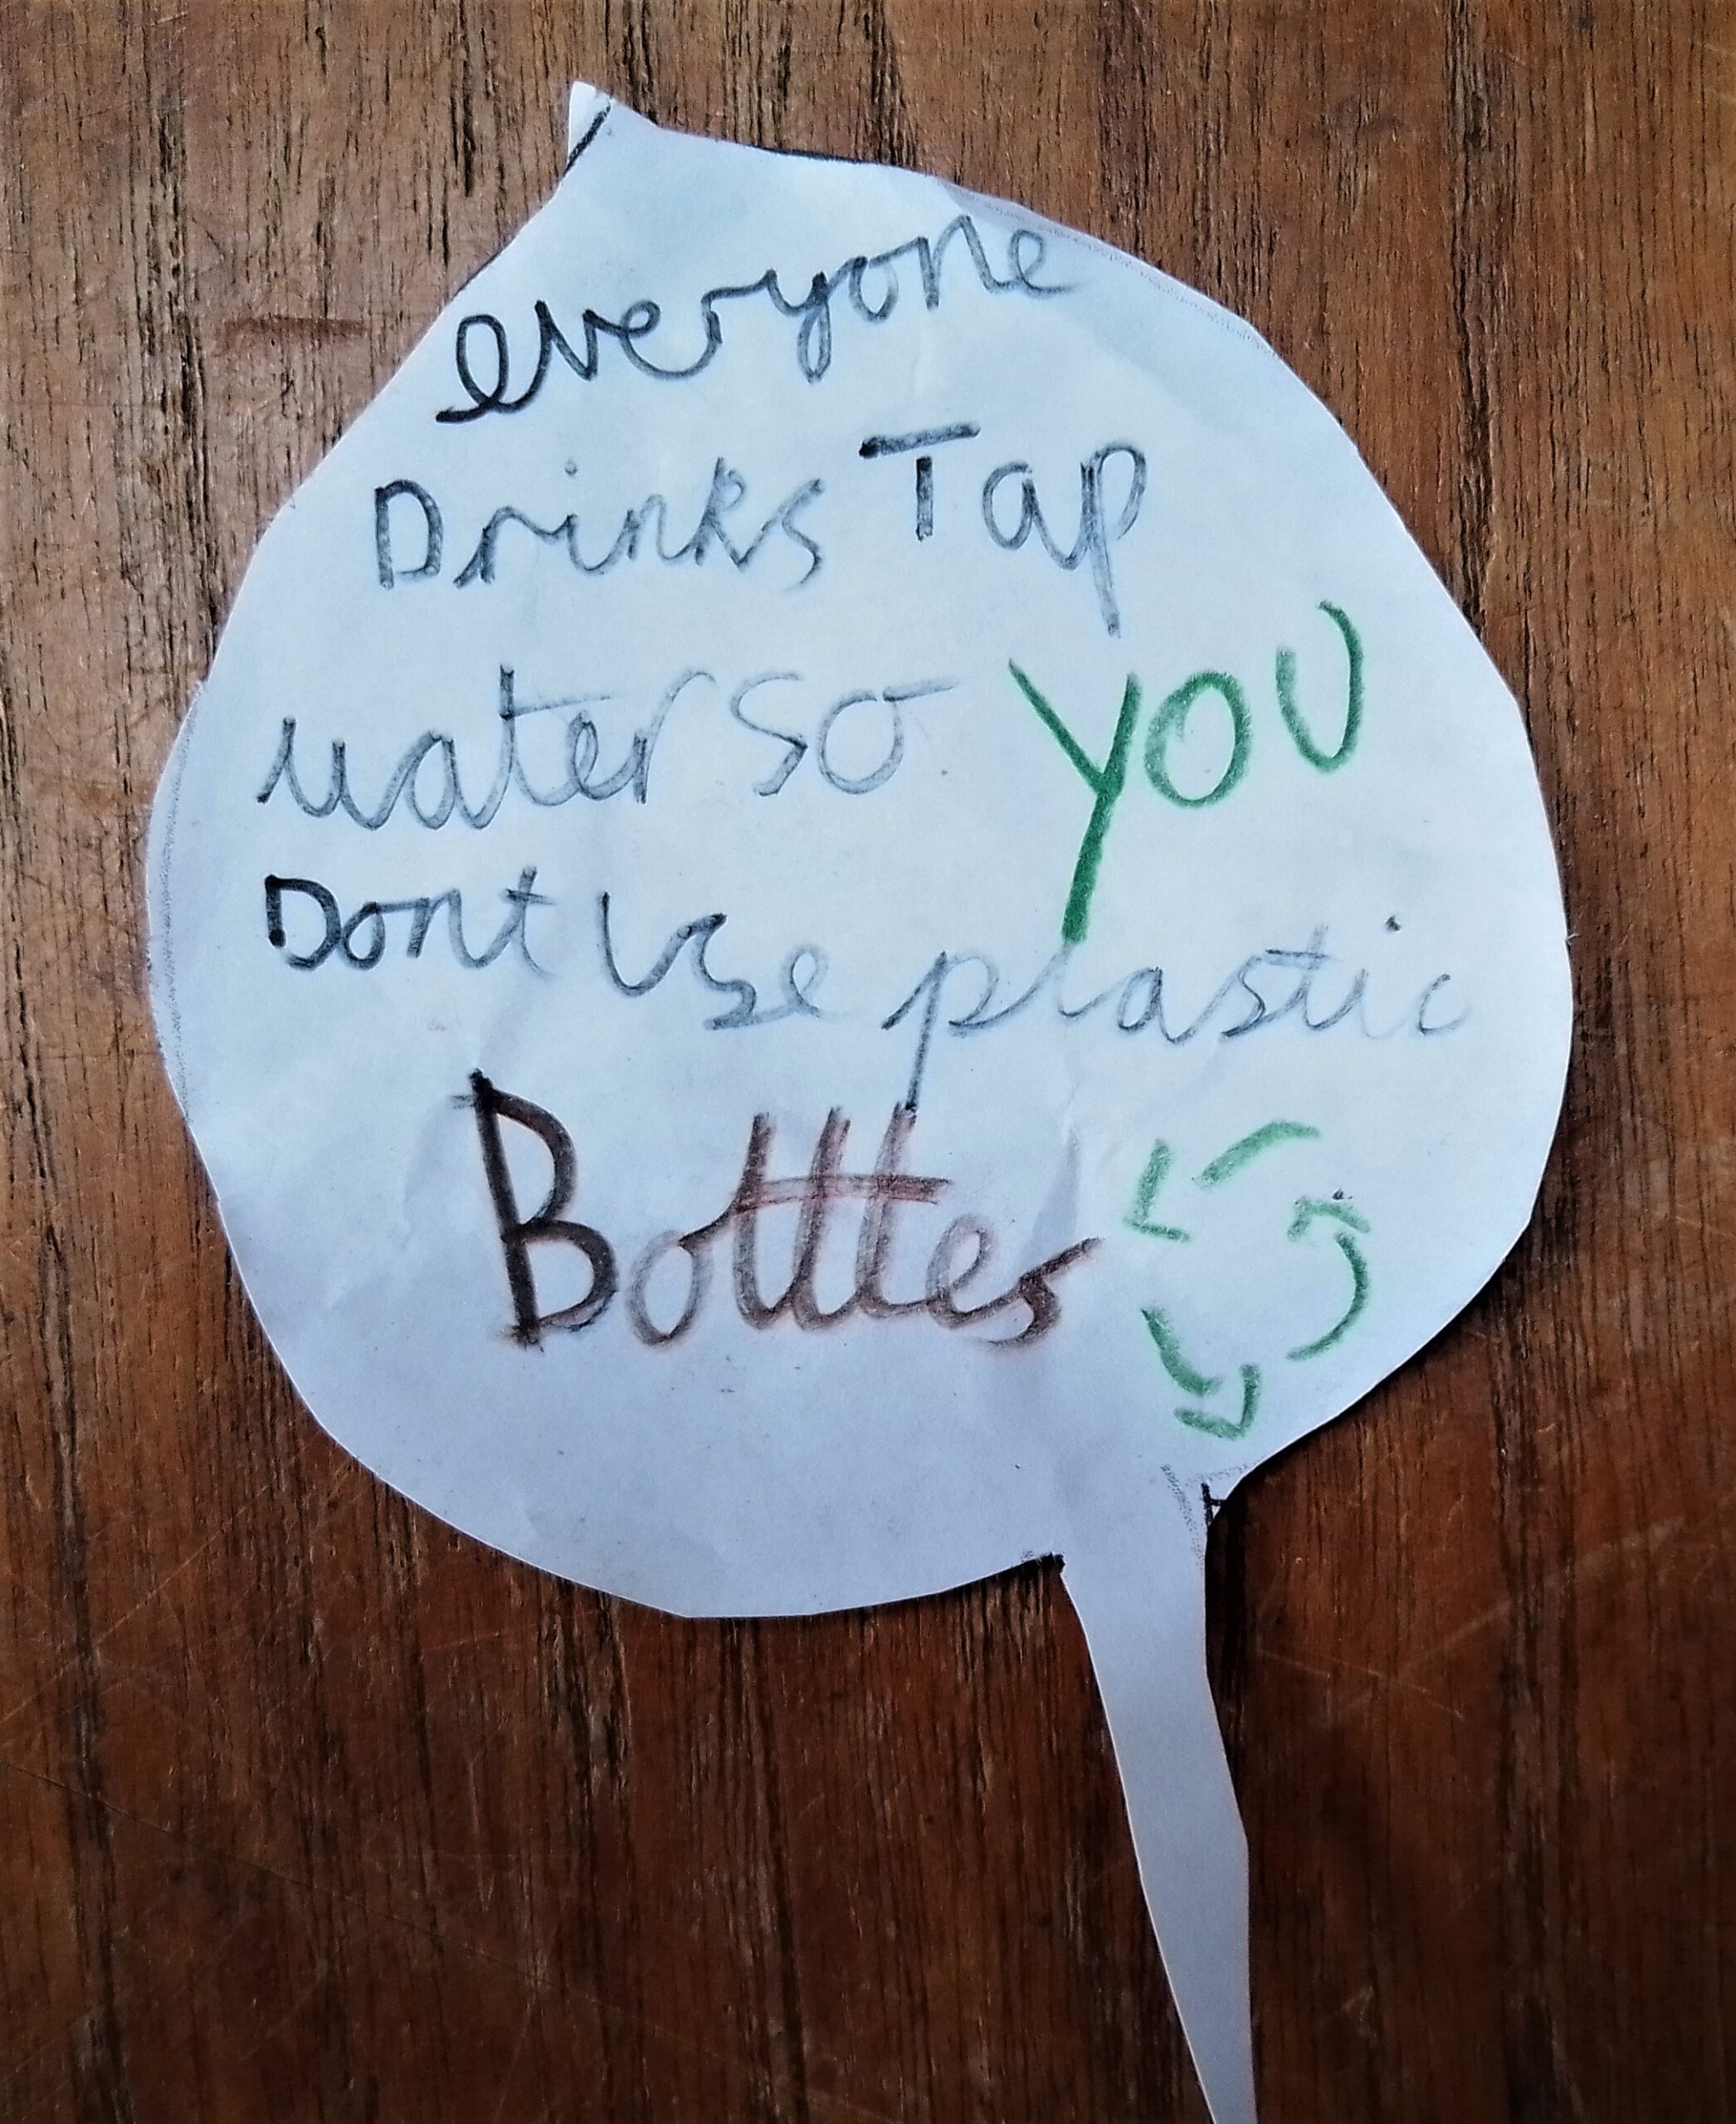 everyone
Drinks Tap
water so YOU
Dont use plastic
Bottles